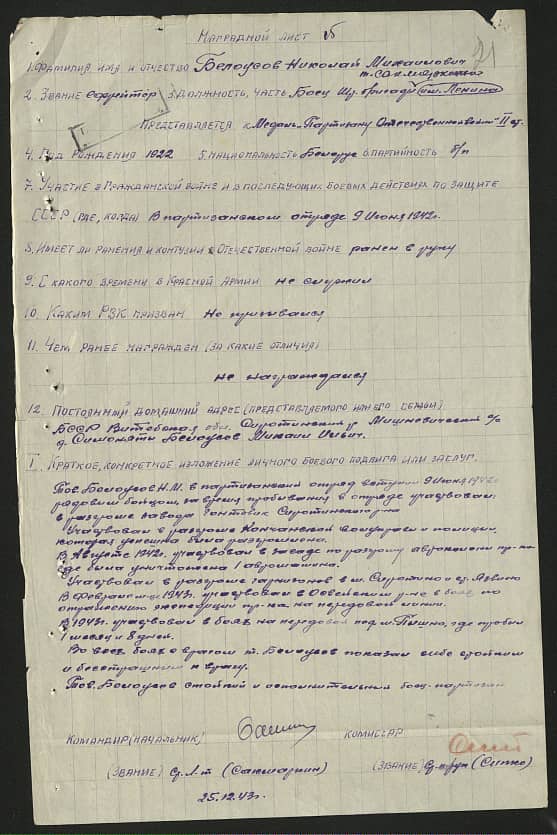 Наградной лист
21
1. Фамилия имя и отчество Белоусов Николай Михайлович
2. Звание ефрейтор 3. Должность, часть Боец бригады им. Ленина
Представляется к Медаль "Партизану Отечественной войны" II ст.
4. Год рождения 1922 5. Национальность Белорус 6. Партийность б/п
7. Участие в Гражданской войне и в последующих боевых действиях по защите
СССР (где, когда) В партизанском отряде 9 Июня 1942г.
8. Имеет ли ранения и контузии в Отечественной войне ранен в руку
9. С какого времени в Красной Армии не служил
10. Каким РВК призван Не призывался
11. Чем ранее награжден (за какие отличия)
не награждался
12. Постоянный домашний адрес (представляемого и его семьи)
БССР Витебская обл. Сиротинский р Мишневический с/с
д. Симонята Белоусов Михаил
I. Краткое, конкретное изложение личного боевого подвига или заслуг.
Тов. Белоусов Н.М. в партизанский отряд вступил 9 Июня 1942г.
рядовым бойцом, за время пребывания в отряде участвовал
в разгроме завода Сиротинского р-на
Участвовал в разгроме волуправы и полиции,
которая успешно была разгромлена.
В Августе 1942г. участвовал в засаде по разгрому автоколонн пр-ка
где была уничтожена 1 автомашина.
Участвовал в разгроме гарнизонов в м. Сиротино и ст. Язвино
В Феврале 1943г. участвовал в Освейском р-не в боях по
отражению экспедиции пр-ка на передовой линии.
В 1943г. участвовал в боях на передовой под м. Пышно, где пробыл
1 месяц и 8 дней.
Во всех боях с врагом т. Белоусов показал себя стойким
и бесстрашным к врагу.
Тов. Белоусов стойкий и исполнительный боец-партизан
Командир (начальник)
Комиссар
(звание) Ст. Л-т
(звание) (Сипко)
25.12.43г.